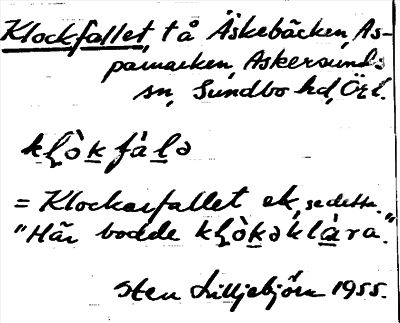 Klockfallet, tå Äskebäcken, As-
pamarken, Askersunds
sn, Sundbo hd, Örl.
kḷò̱k fȧ̀lə
= Klockarfallet ek, se detta.
"Här bodde kḷò̱kəklȧ̀ra."
Sten Lilljebjörn 1955.